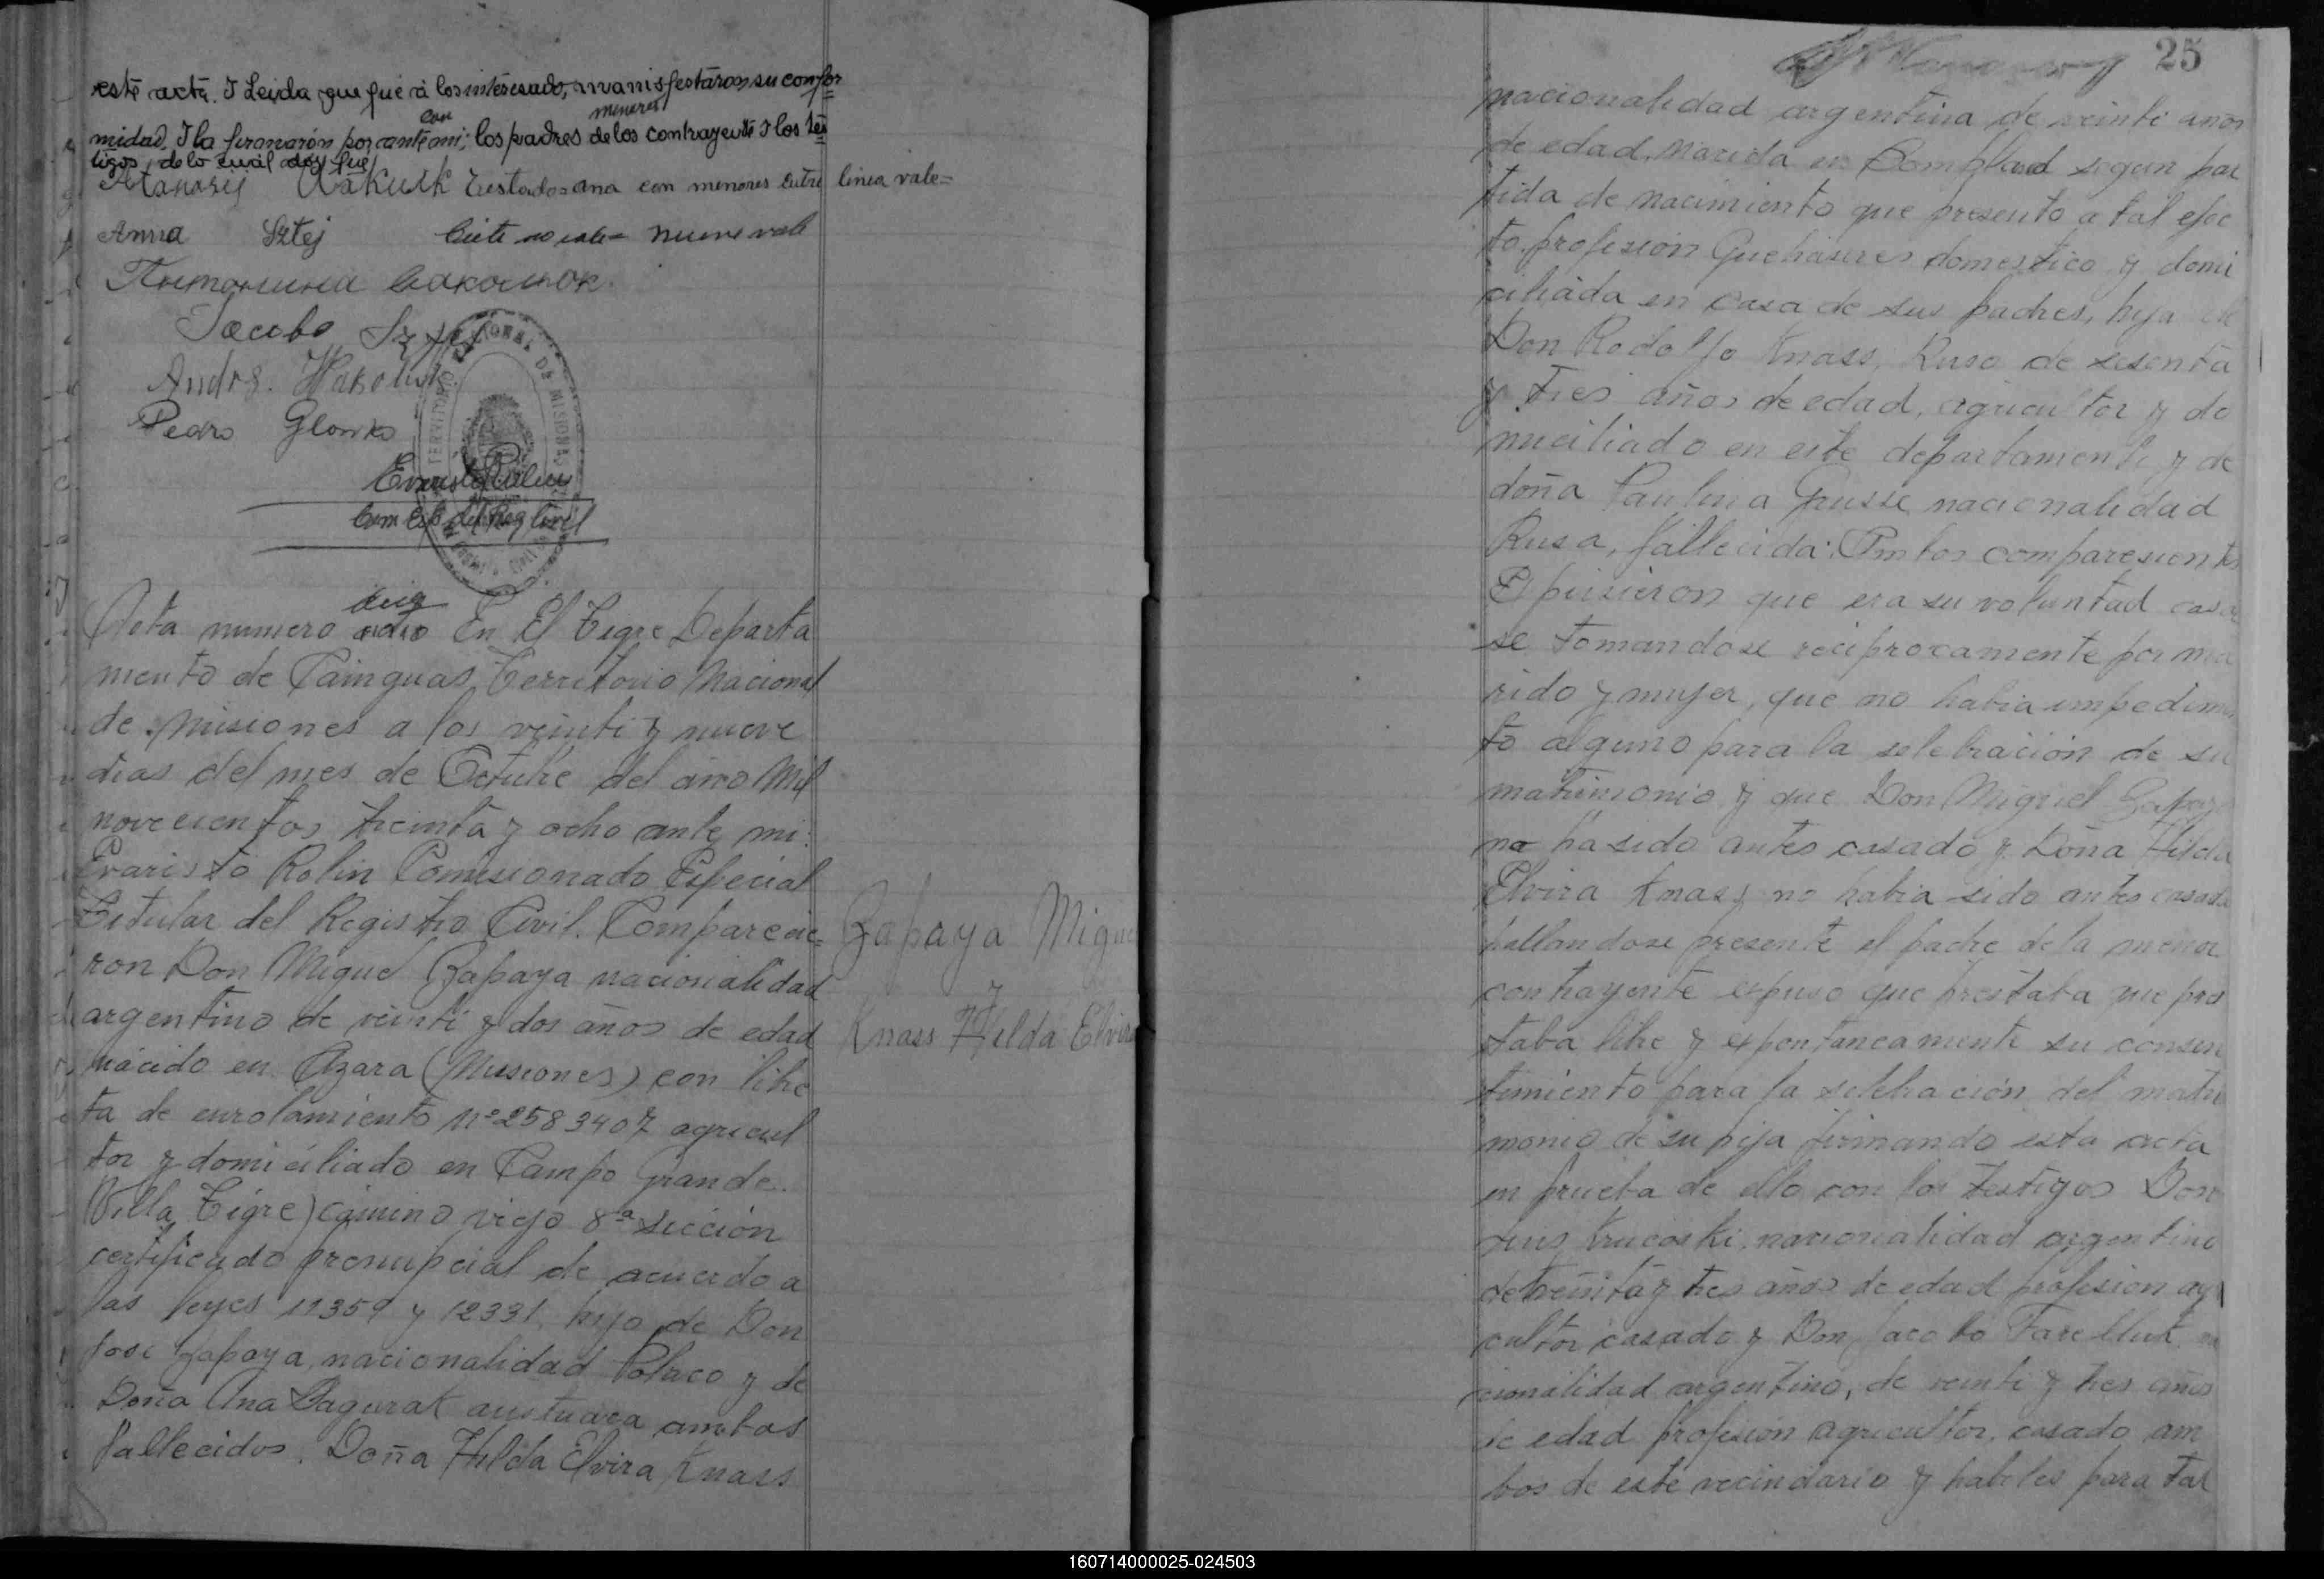 este acta. I Leida que fué á los interesado, manisfestaron su confor
midad, I la firmarón por ante mi; con los padres de los menores contrayente I los tes
tigos, de lo cual doy fue
Atanasij Wakuik Testado=ana con menores entre linea vale=
Anna Sztej Siete no vale= nueve vale
Jacobo Sztej
Andrs.
Pedro Glowko
TERRITORIO NACIONAL DE MISIONES
Evaristo Rolin
Com Esp del Reg Civil
Acta numero ocho diez En El Tigre Departa
mento de Cainguas, Territorio Nacional
de Misiones a los veinti y nueve
dias del mes de Octubre del año Mil
novecientos treinta y ocho ante mi:
Evaristo Rolin Comisionado Especial
Titular del Registro Civil. Comparecie=
ron Don Miguel Zapaya nacionalidad
argentino de veinti y dos años de edad
nácido en Azara (Misiones) con libre
ta de enrolamiento Nº 2583407 agricul
tor y domiciliado en Campo Grande.
(Villa Tigre) camino viejo 8ª sección
certificado prenupcial de acuerdo a
las leyes 11359 y 12331, hijo de Don
José Zapaya, nacionalidad Polaco y de
Doña Ana Pagurak austriaca ambos
fallecidos. Doña Hilda Elvira Knass
Zapaya Miguel
y
Knass Hilda Elvira
25
nacionalidad argentina de veinti años
de edad, nacida en segun par
tida de nacimiento que presento a tal efec
to. profesión Quehaseres domestico y domi
ciliáda en casa de sus padres, hija de
Don Rodolfo Knass, Ruso de sesenta
y tres años de edad, agricultor y do
miciliado en este departamento y de
doña Paulina Grusse nacionalidad
Rusa, fallecida: Ambos comparesientes
Espusieron que era su voluntad casar
se tomandose reciprocamente por ma
rido y mujer, que no habia impedimen
to alguno para la selebración de su
matrimonio y que Don Miguel Zapaya
no ha sido antes casado y Doña Hilda
Elvira Knass no habia sido antes casada
hallandose presente el padre de la menor
contrayente espuso que prestaba que pres
taba libre y espontaneamente su consen
timiento para la selebración del matri
monio de su hija firmando esta acta
en prueba de ello con los testigos Don
Luis Krucoski, nacionalidad argentino
de treinta y tres años de edad profesion agri
cultor casado y Don Jacobo Farelluk na
cionalidad argentino, de veinti y tres años
de edad profesión agricultor, casado am
bos de este vecindario y habiles para tal
160714000025-024503